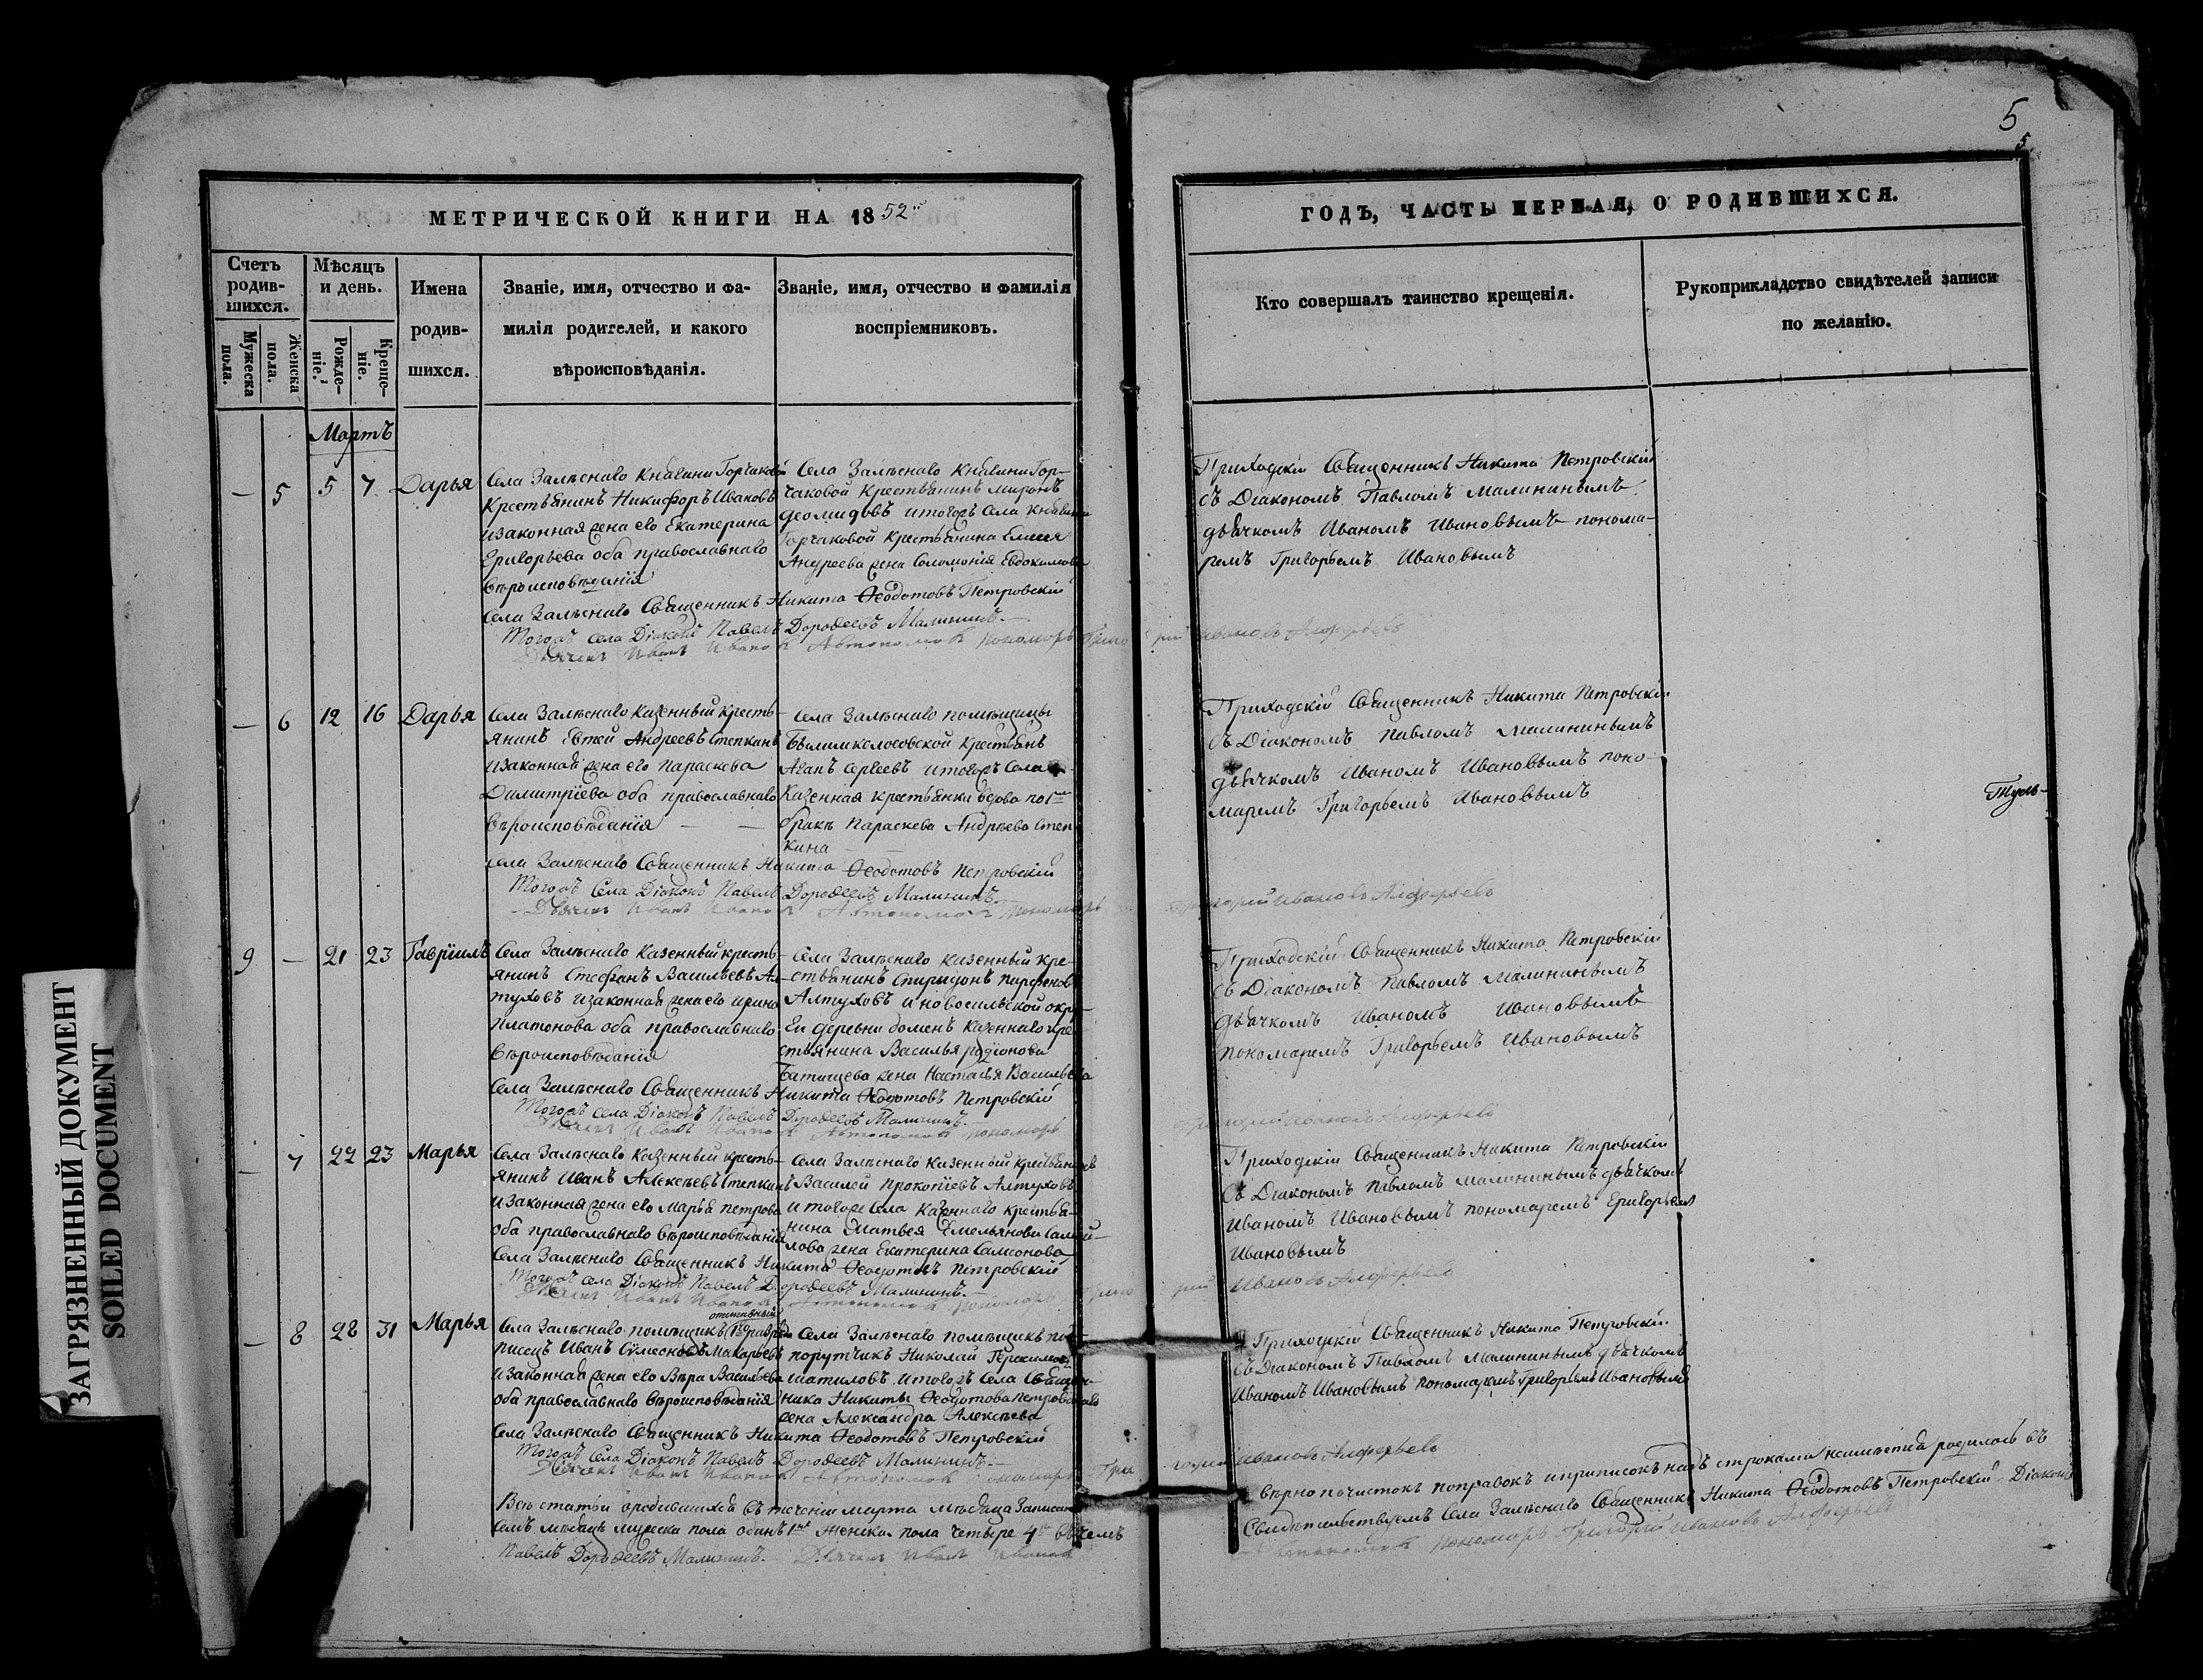 5
5
МЕТРИЧЕСКОЙ КНИГИ НА 1852й
ГОДЪ, ЧАСТЬ ПЕРВАЯ, О РОДИВШИХСЯ.
Счетъ родив-шихся.
Мужеска пола.
Женска пола.
Мѣсяцъ и день.
Рожде-ніе.
Креще-ніе.
Имена родив-шихся.
Званіе, имя, отчество и фа-
милія родителей, и какого
вѣроисповѣданія.
Званіе, имя, отчество и фамилія
воспріемниковъ.
Кто совершалъ таинство крещенія.
Рукоприкладство свидѣтелей записи
по желанію.
Мартъ
— 5 5 7 Дарья
Села Залѣснаго Княгини Горчаковой
Крестьянинъ Никифоръ Ивановъ
изаконная жена его Екатерина
Григорьева оба православнаго
вѣроисповѣданія
Села Залѣснаго Княгини Гор-
чаковой Крестьянинъ Миронъ
Деомидовъ итогожъ Села Княгини
Горчаковой Крестьянина Елисея
Андреева жена Соломонія Евдокимова
Приходскій Священникъ Никита Петровскій
съ Діакономъ Павломъ Малининымъ
дьячкомъ Иваномъ Ивановымъ понома-
ремъ Григорьемъ Ивановымъ
Села Залѣснаго Священникъ Никита Ѳеодотовъ Петровскій
Тогожъ села Діаконъ Павелъ Дороѳеевъ Малининъ.—
Дьячекъ Иванъ Ивановъ Автономовъ Пономарь Григорій Ивановъ Алферьевъ
— 6 12 16 Дарья
Села Залѣснаго Казенный кресть-
янинъ Евтей Андреевъ Степкинъ
изаконная жена его Параскева
Димитріева оба православнаго
вѣроисповѣданія — —
Села Залѣснаго помѣщицы
крестьянъ
Агапъ Сергеевъ итогожъ Села
Казенная крестьянка вдова по 1мъ
бракѣ Параскева Андрѣева Степ
кина
Приходскій Священникъ Никита Петровскій
съ Діакономъ Павломъ Малининымъ
дьячкомъ Иваномъ Ивановымъ поно-
маремъ Григорьемъ Ивановымъ
Туль-
Села Залѣснаго Священникъ Никита Ѳеодотовъ Петровскій
Тогожъ Села Діаконъ Павелъ Дороѳеевъ Малининъ.
Дьячекъ Иванъ Ивановъ Автономовъ Пономарь Григорій Ивановъ Алферьевъ
9 — 21 23 Гавріилъ
Села Залѣснаго Казенный кресть-
янинъ Стефанъ Васильевъ Ал-
туховъ изаконная жена его Ирина
Платонова оба православнаго
вѣроисповѣданія
Села Залѣснаго Казенный кре-
стьянинъ Спиридонъ Парфенов
Алтуховъ и новосильской окр-
ги деревни казеннаго кре
стьянина Василья Родіонова
Батищева жена Настасья Васильева
Приходскій Священникъ Никита Петровскій
съ Діакономъ Павломъ Малининымъ
дьячкомъ Иваномъ Ивановымъ
пономаремъ Григорьемъ Ивановымъ
Села Залѣснаго Священникъ Никита Ѳеодотовъ Петровскій
Тогожъ села Діаконъ Павелъ Дороѳеевъ Малининъ.
Дьячекъ Иванъ Ивановъ Автономовъ Пономарь Григорій Ивановъ Алферьевъ
— 7 22 23 Марья
Села Залѣснаго Казенный кресть-
янинъ Иванъ Алексѣевъ Степкинъ
изаконная жена его Марья Петрова
оба православнаго вѣроисповѣданія
Села Залѣснаго Казенный Крестьянинъ
Василей Прокопіевъ Алтуховъ
итогоже села Казеннаго крестья-
нина Матвея Емельянова Самой-
лова жена Екатерина Самсонова
Приходскій Священникъ Никита Петровскій
Съ Діакономъ Павломъ Малининымъ дьячкомъ
Иваномъ Ивановымъ пономаремъ Григорьемъ
Ивановымъ
Села Залѣснаго Священникъ Никита Ѳеодотовъ Петровскій
Тогожъ села Діаконъ Павелъ Дороѳеевъ Малининъ.
Дьячекъ Иванъ Ивановъ Автономовъ Пономарь Григорій Ивановъ Алферьевъ
— 8 28 31 Марья
отставный
Села Залѣснаго помѣщикъ 1го разряда
писецъ Иванъ Макарьевъ
изаконная жена его Вѣра Васильева
оба православнаго вѣроисповѣданія
Села Залѣснаго помѣщикъ под-
порутчикъ Николай Герасимовъ
Шатиловъ итогожъ Села Священ-
ника Никиты Ѳеодотова Петровскаго
жена Александра Алексѣева
Приходскій Священникъ Никита Петровскій
съ Діакономъ Павломъ Малининымъ дьячкомъ
Иваномъ Ивановымъ пономаремъ Григорьемъ Ивановымъ
Села Залѣснаго Священникъ Никита Ѳеодотовъ Петровскій
Тогожъ Села Діаконъ Павелъ Дороѳеевъ Малининъ.—
Дьячекъ Иванъ Ивановъ Автономовъ Пономарь Григорій Ивановъ Алферьевъ
Всѣ статьи ородившихся въ теченіи марта мѣсяца Записаны вѣрно почистокъ поправокъ иприписокъ надъ строками неимѣется родилось въ
семъ мѣсяцѣ мужеска пола одинъ 1нъ женска пола четыре 4ре въ чемъ Свидѣтельствуемъ Села Залѣснаго Священникъ Никита Ѳеодотовъ Петровскій Діаконъ
Павелъ Дороѳеевъ Малининъ.— Дьячекъ Иванъ Ивановъ Автономовъ Пономарь Григорій Ивановъ Алферьевъ
ЗАГРЯЗНЕННЫЙ ДОКУМЕНТ
SOILED DOCUMENT